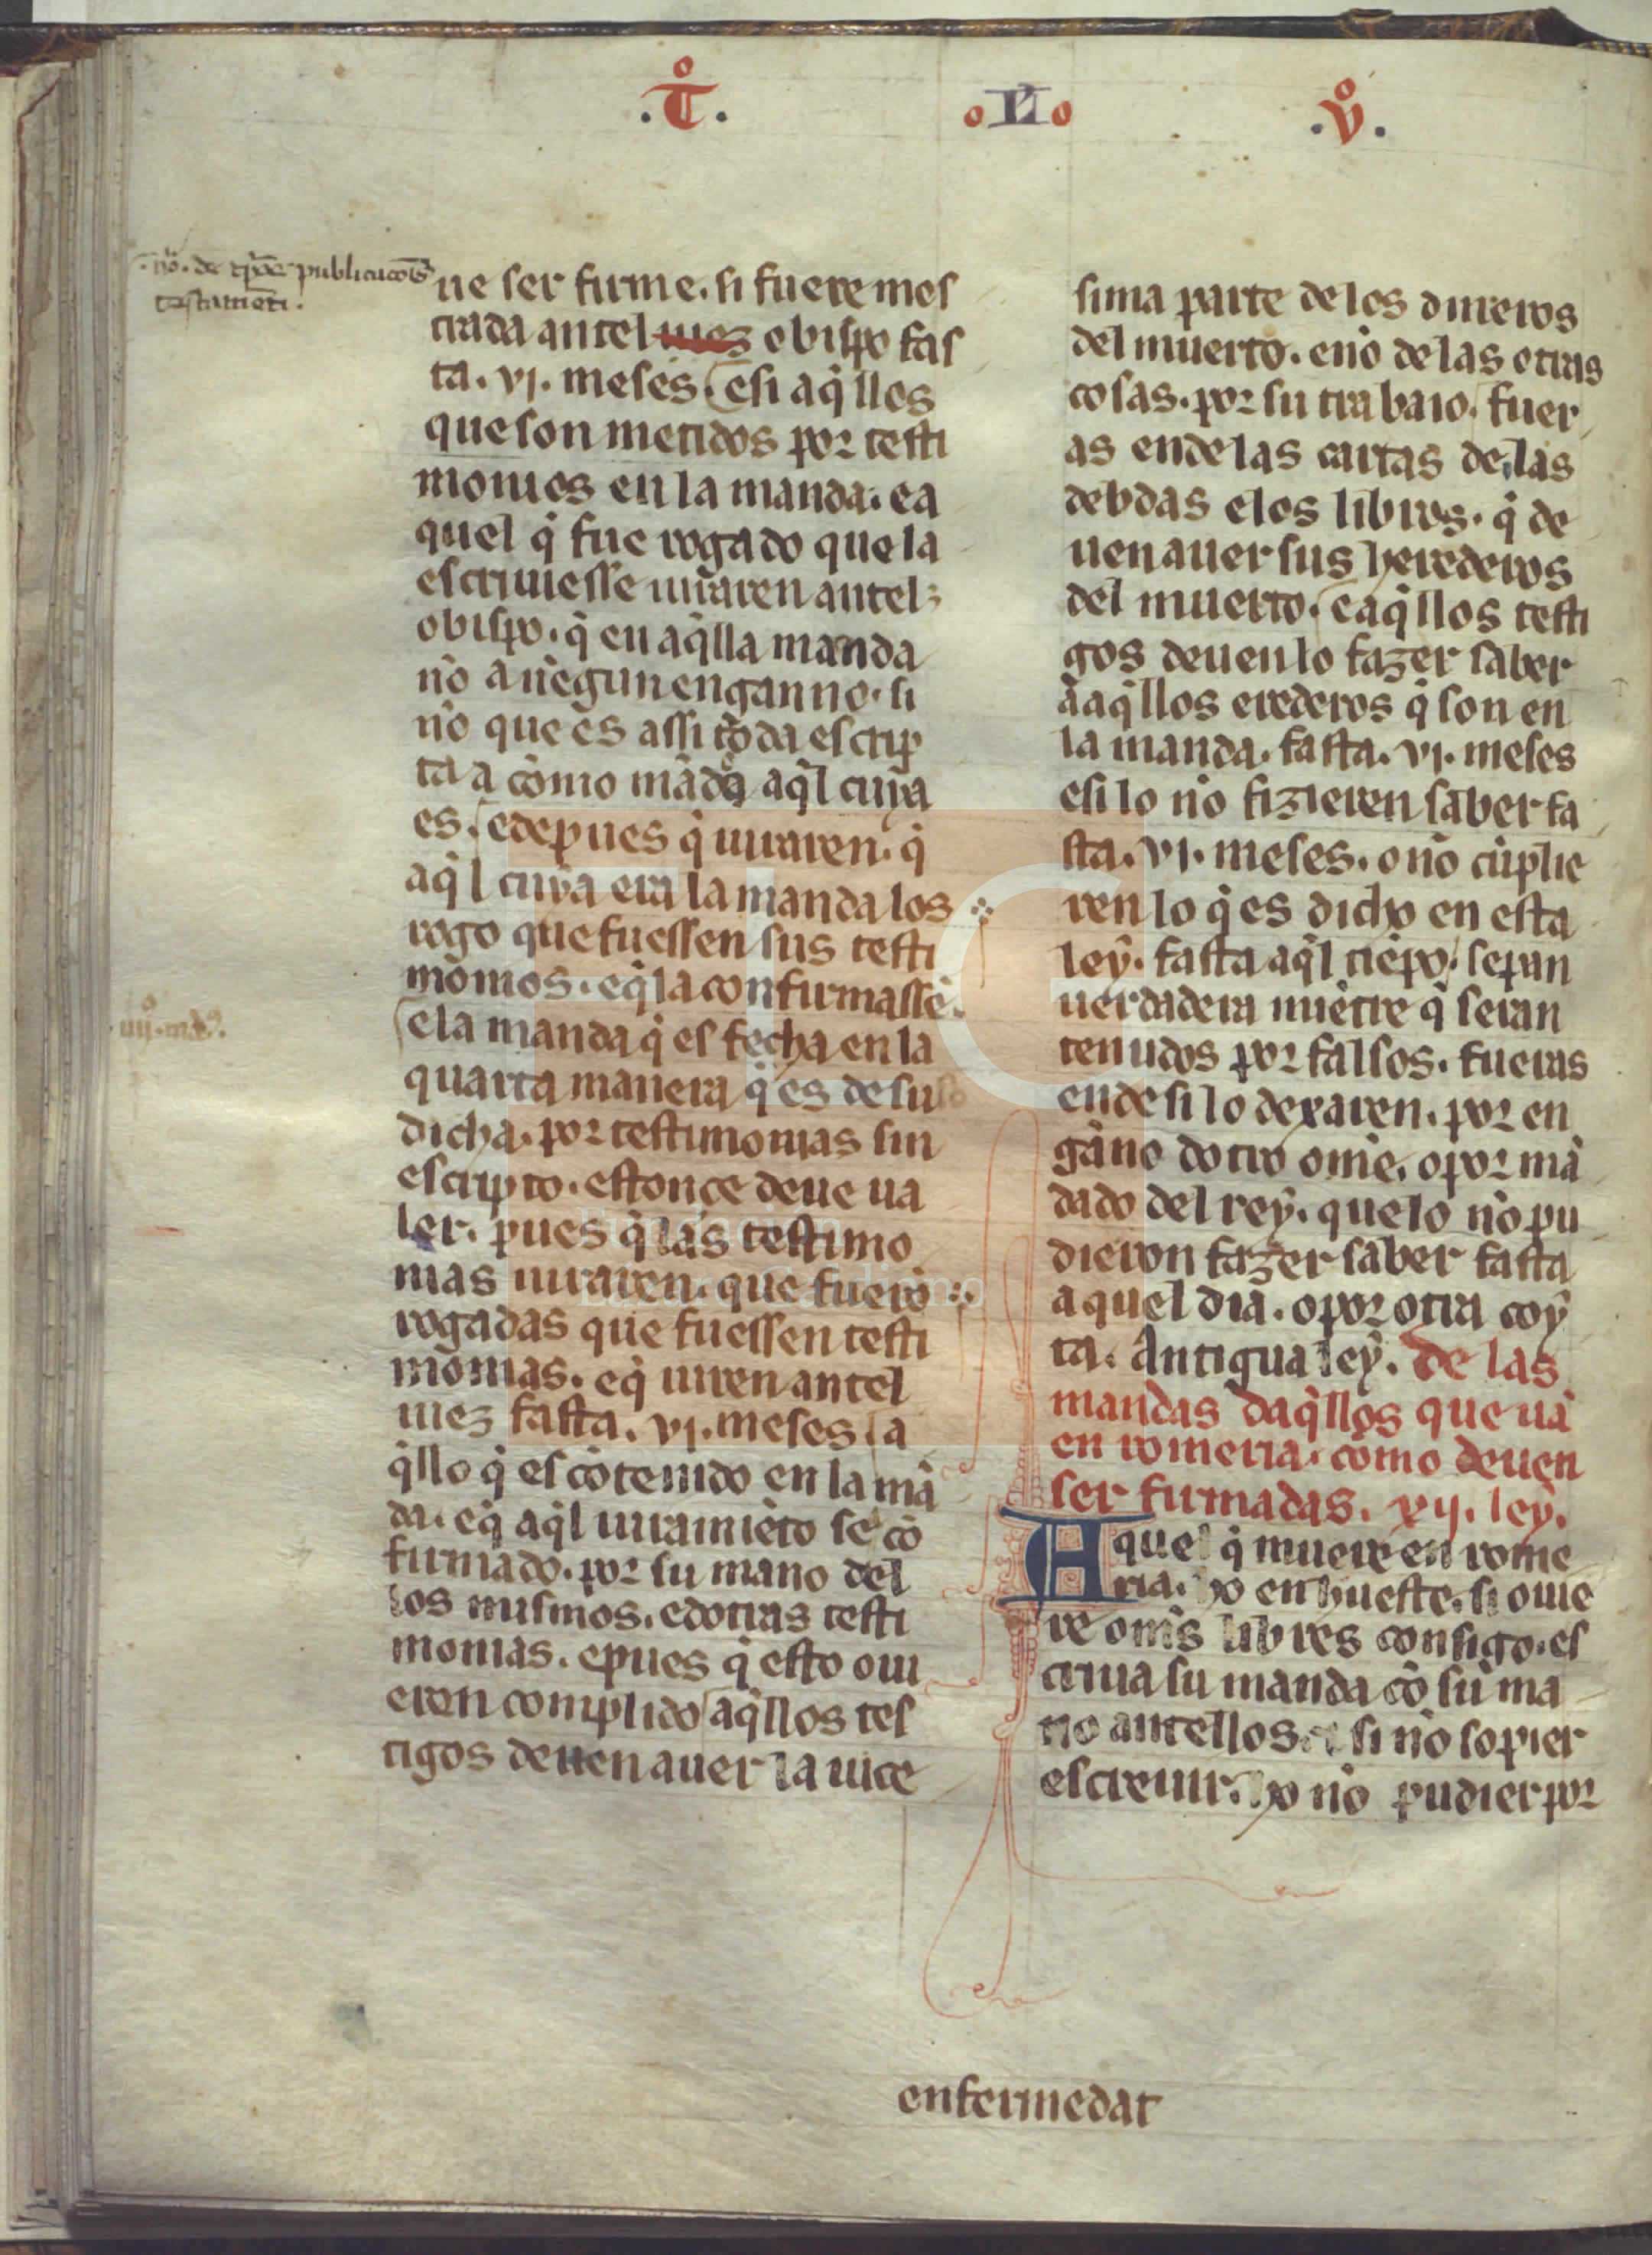 .T̊. L .v̊.
nõ. de tp̃oe publicacõis
testamēti.
ue ser firme. si fuere mos
trada antel iuez obispo fas
ta. vj. meses. esi aq̇llos
que son metidos por testi
monios en la manda. ea
quel q̇ fue rogado que la
escriuiesse iuraren antel
obispo. q̇ en aq̇lla manda
nō a negun enganno. si
nō que es assi toda escrip
ta a como mādo aq̇l cuya
es. edepues q̇ iuraren. q̇
aq̇l cuya era la manda los
rogo que fuessen sus testi
monios. eq̇ la confirmassē.
iiijo. mao.
e la manda q̇ es fecha en la
quarta manera q̇ es de suso
dicha. por testimonias sin
escripto. estonce deue ua
ler. pues q̇ las testimo
nias iuraren. que fuerō
rogadas que fuessen testi
monias. eq̇ iuren antel
iuez fasta. vj. meses. a
q̇llo q̇ es cōtenido en la mā
da. eq̇ aq̇l iuramiēto se cō
firmado. por su mano del
los mismos. edotras testi
monias. epues q̇ esto oui
eren complido aq̇llos tes
tigos deuen auer la uice
sima parte de los dineros
del muerto. enō de las otras
cosas. por su trabaio. fuer
as ende las cartas de las
debdas elos libros. q̇ de
uen auer sus herederos
del muerto. eaq̇llos testi
gos deuen lo fazer saber
a aq̇llos erederos q̇ son en
la manda. fasta. vj. meses
esi lo nō fizieren saber fa
sta. vj. meses. o nō cūplie
ren lo q̇ es dicho en esta
ley. fasta aq̇l tiēpo. sepan
uerdadera miētre q̇ seran
tenudos por falsos. fueras
ende si lo dexaren. por en
gāno dotro omē. opor mā
dado del rey. quelo nō pu
dieron fazer saber fasta
aquel dia. o por otra coy
ta. Antigua ley. De las
mandas daq̇llos que uā
en romeria. como deuen
ser firmadas. xij. ley.
Aquel q̇ muere en rome
ria. ho en hueste. si ouie
re omēs libres consigo. es
criua su manda cō su ma
no antellos. e si nō sopier
escreuir. ho nō pudier por
enfermedat